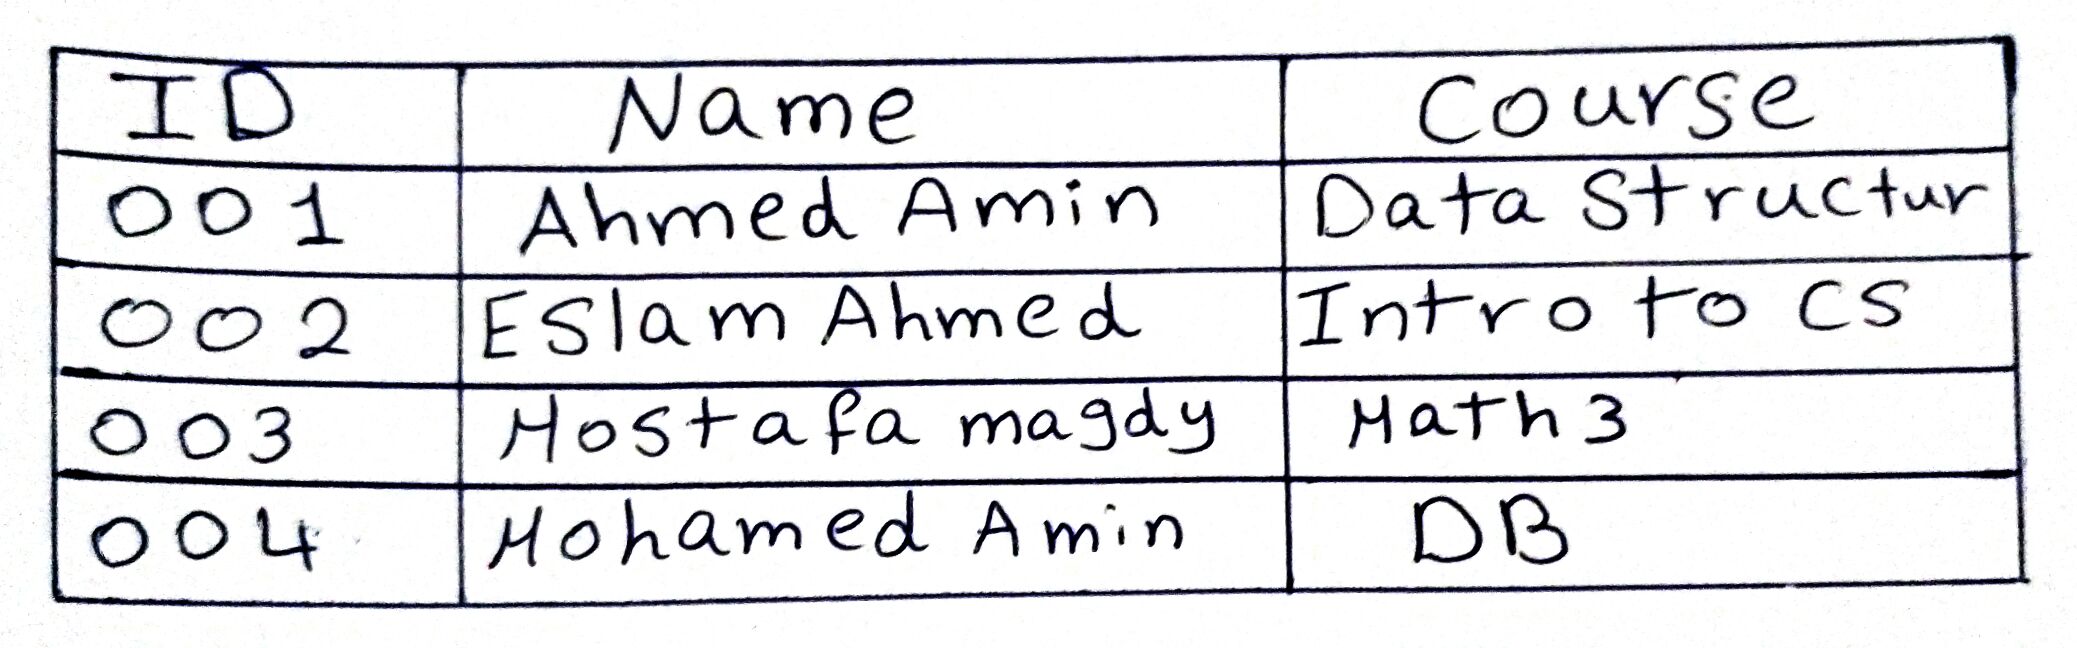 ID Name Course
001 Ahmed Amin Data Structur
002 ESlam Ahmed Intro to CS
003 Mostafa magdy Math3
004 Mohamed Amin DB